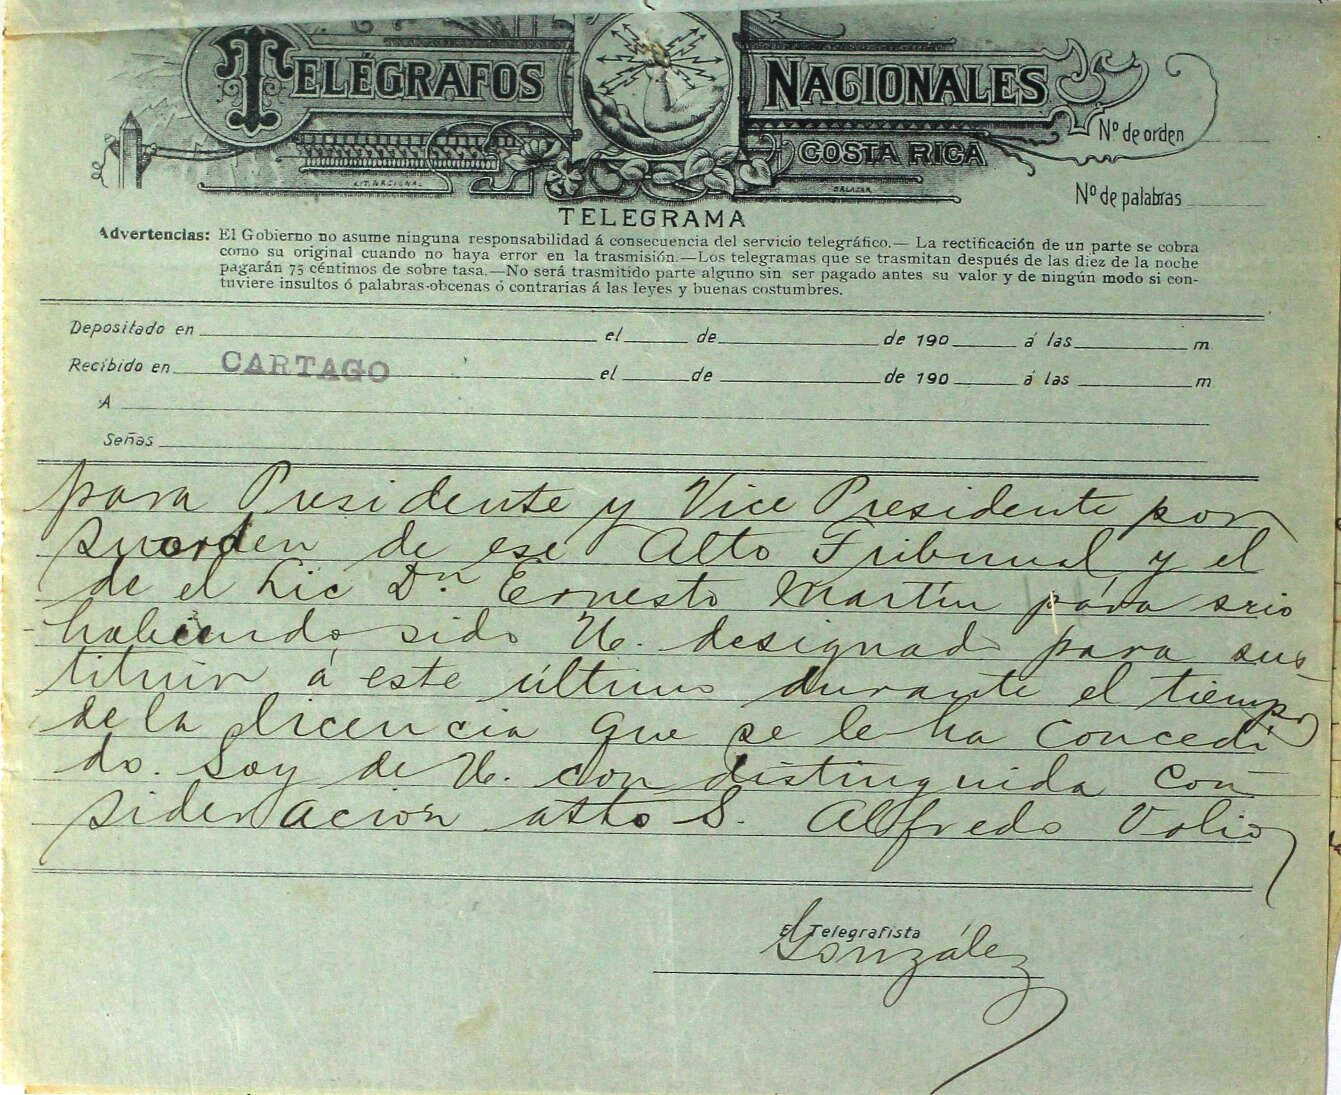 TELÉGRAFOS NACIONALES
COSTA RICA
Nº de orden
LIT. NACIONAL
SALAZAR
Nº de palabras
TELEGRAMA
Advertencias: El Gobierno no asume ninguna responsabilidad á consecuencia del servicio telegráfico.— La rectificación de un parte se cobra
como su original cuando no haya error en la trasmisión.—Los telegramas que se trasmitan después de las diez de la noche
pagarán 75 céntimos de sobre tasa.—No será trasmitido parte alguno sin ser pagado antes su valor y de ningún modo si con-
tuviere insultos ó palabras obcenas ó contrarias á las leyes y buenas costumbres.
Depositado en el de de 190 á las m
Recibido en CARTAGO el de de 190 á las m
A
Señas
para Presidente y Vice Presidente por
su orden de ese Alto Tribunal y el
de el Lic Dn. Ernesto Martín para srio
habiendo sido U. designado para sus
tituir á este último durante el tiempo
de la licencia que se le ha concedi
do. Soy de U. con distinguida con
sideración atto S. Alfredo Volio
El Telegrafista
González